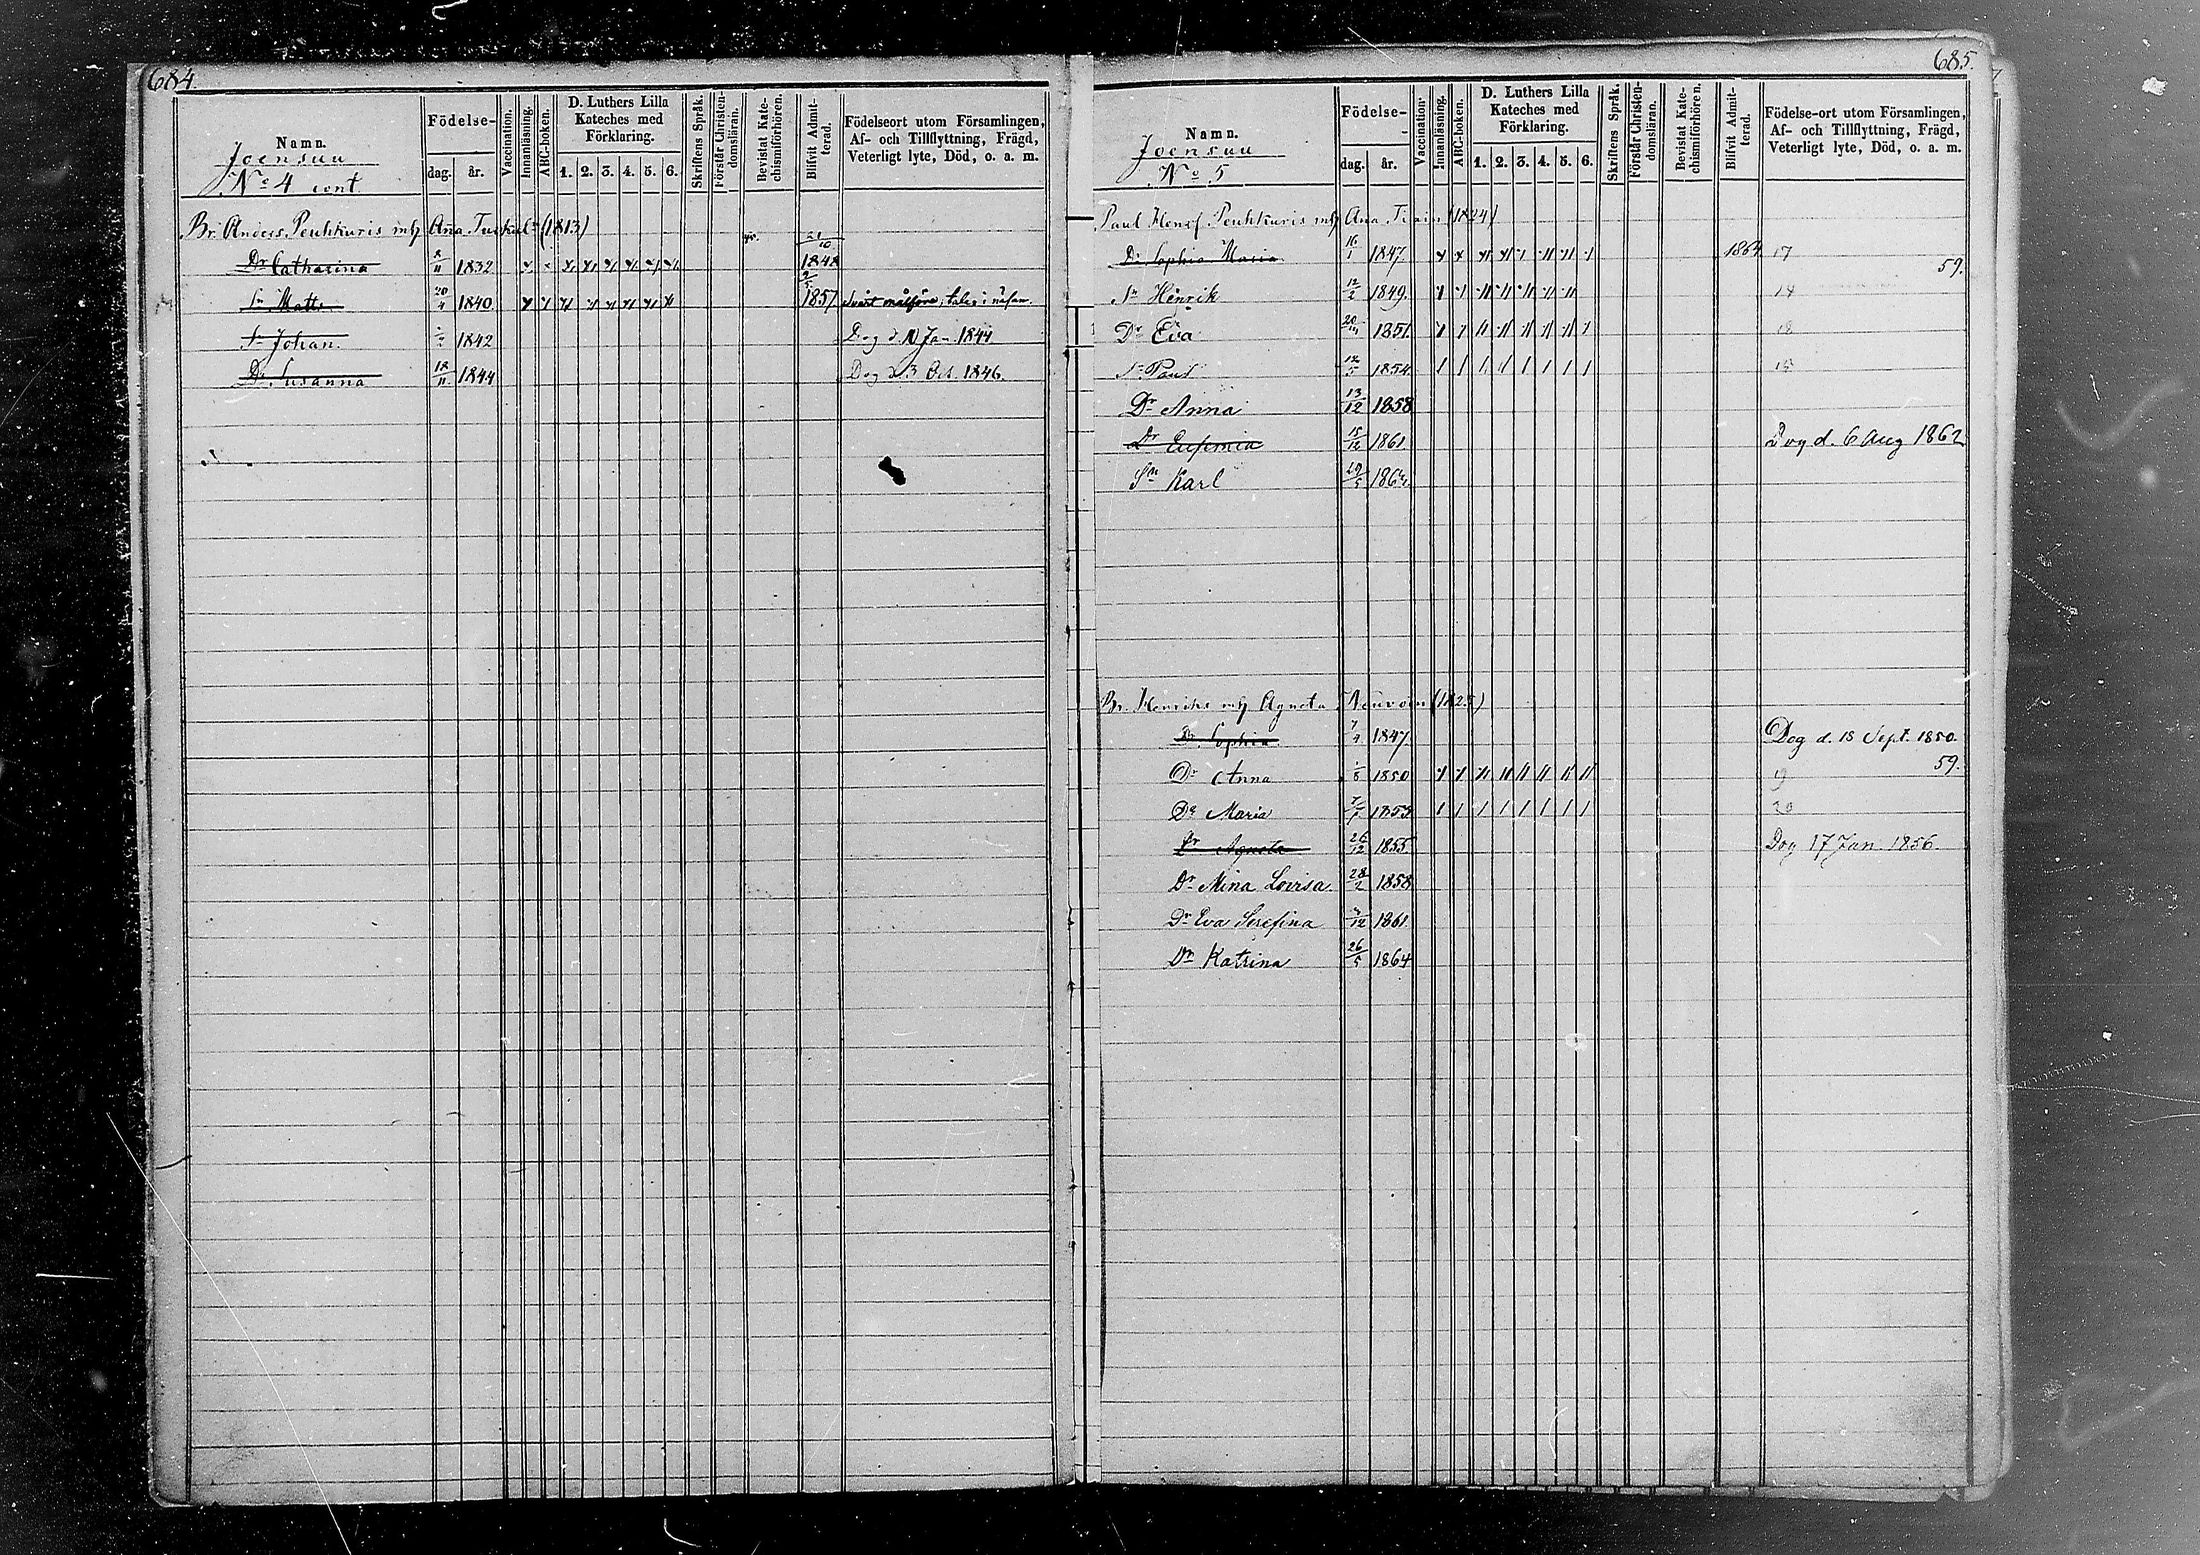 684.
Namn.
Joensuu
No 4 cont
Födelse-
dag. år.
Vaccination.
Innanläsning.
ABC-boken.
D. Luthers Lilla
Kateches med
Förklaring.
1. 2. 3. 4. 5. 6.
Skriftens Språk.
Förstår Christen-
domsläran.
Bevistat Kate-
chismiförhören.
Blifvit Admit-
terad.
Födelseort utom Församlingen,
Af- och Tillflyttning, Frägd,
Veterligt lyte, Död, o. a. m.
Br. Anders Peuhkuris mh Aña (1813)
Dr Catharina 1832 1848
Sn Matts 20/4 1840. 1857 Svårt målföre, talar i näsan.
Sn Johan. 1842 Dog d. Jan. 1844
Dr Susanna 18/11 1844 Dog d. 3 Oct. 1846.
685.
Namn.
Joensuu
No 5
Födelse-
dag. år.
Vaccination
Innanläsning.
ABC-boken.
D. Luthers Lilla
Kateches med
Förklaring.
1. 2. 3. 4. 5. 6.
Skriftens Språk.
Förstår Christen-
domsläran.
Bevistat Kate-
chismiförhören.
Blifvit Admit-
terad.
Födelse-ort utom Församlingen,
Af- och Tillflyttning, Frägd,
Veterligt lyte, Död, o. a. m.
Paul Henrs. Peuhkuris mh Ana (1824)
Dr Sophia Maria 16/1 1847. 1864 17
59.
Sn Henrik 12/2 1849.
Dr Eva 1851.
Sn Paul 12/5 1854.
Dr Anna 13/12 1858
Dr Eufemia 15/12 1861. Dog d. 6 Aug 1862
Sn Karl 29/5 1864.
Br. Henriks mh Agneta
Dr Sophia 1847. Dog d. 18 Sept. 1850.
Dr Anna 1850 59.
Dr Maria 1853
Dr Agneta 26/12 1855 Dog 17 Jan. 1856.
Dr Mina Lovisa. 28/2 1858
Dr Eva Serefina 1861.
Dr Katrina 26/5 1864